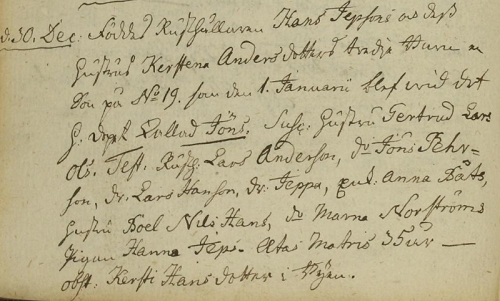 d. 30. Dec. Föddes Rusthållaren Hans Jepsons och dess
Hustrus Kerstena Anders dotters tredje Barn en
Son på No 19. som den 1. Januarii blef wid det
H. dopt kallad Jöns. Susc. Hustru Gertrud Lars
Ols. Test. Rusth. Lars Anderson, do Jöns Pehr-
son, dr. Lars Hanson, dr. Jeppa, Anna Båts,
Hustru Boel Nils Hans, do Marna Norströms
Pigan Hanna Jeps. Ætas Matris 35 år —
obst. Kersti Hans dotter i Byen.